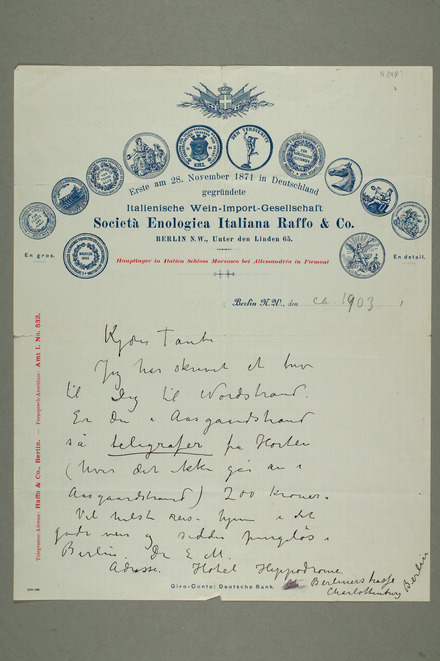 N 848
Erste am 28. November 1871 in Deutschland
gegründete
Italienische Wein-Import-Gesellschaft
Società Enologica Italiana Raffo & Co.
BERLIN N.W., Unter den Linden 65.
En gros.
En detail.
Hauptlager in Italien Schloss Morsasco bei Alessandria in Piemont
Berlin N.W., den ca 1903
Kjære Tante
Jeg har skrevet et brev
til Dig til Nordstrand.
Er Du i Aasgaardstrand
så telegrafer på Horten
(hvis det ikke går an i
Aasgaardstrand) 200 Kroner.
Vil helst reise hjem i det
gode veir og sidder pengeløs i
Berlin. Dr E. M.
Adresse. Hotel Hippodrome.
Berlinerstrasse
Charlottenburg Berlin
Telegramm-Adresse: Raffo & Co., Berlin. — Fernsprech-Anschluss: Amt I. No. 532.
Giro-Conto: Deutsche Bank.